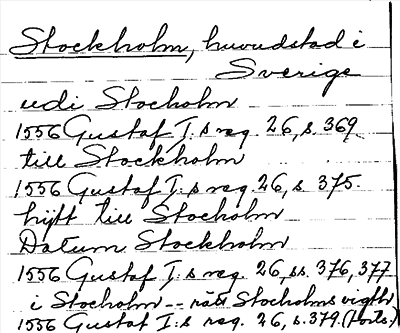 Stockholm, huvudstad i
Sverige
udi Stocholm
1556 Gustaf I:s reg. 26, s. 369.
till Stockholm
1556 Gustaf I:s reg. 26, s. 375.
hijtt till Stocholm
Datum Stockholm
1556 Gustaf I:s reg. 26, ss. 376, 377
i Stocholm -- rätt Stocholms vigtt
1556 Gustaf I:s reg. 26, s. 379. (Forts.)